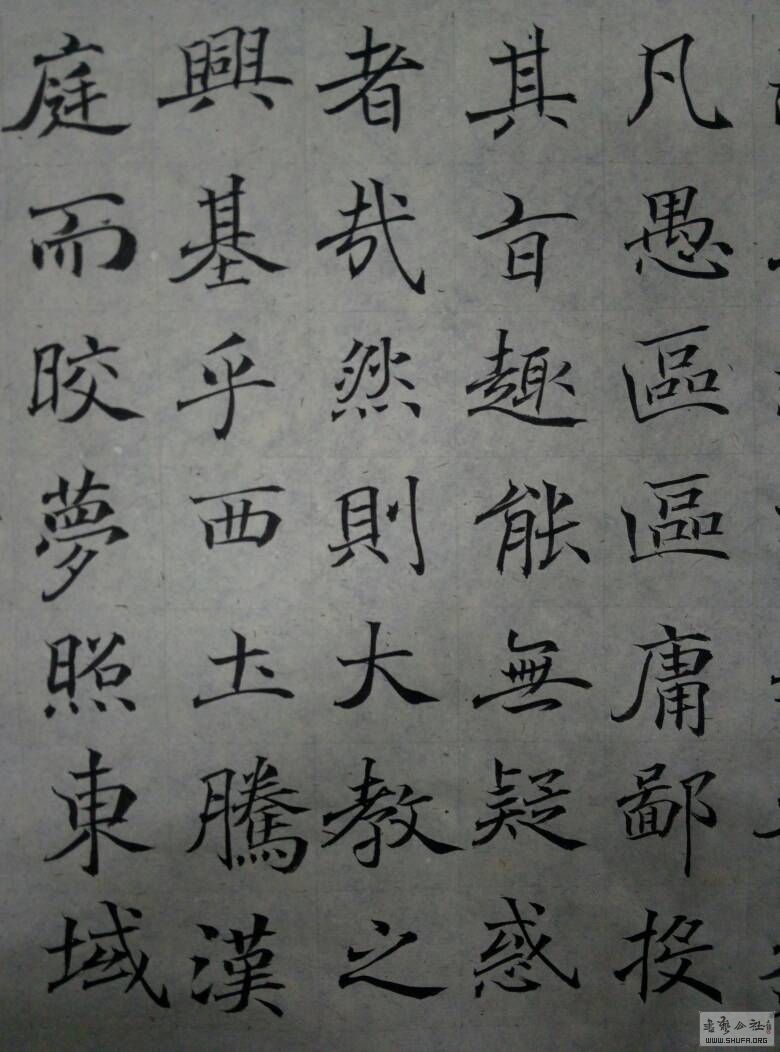 凡愚區區庸鄙投
其旨趣能無疑惑
者哉然則大教之
興基乎西土騰漢
庭而皎夢照東域
WWW.SHUFA.ORG